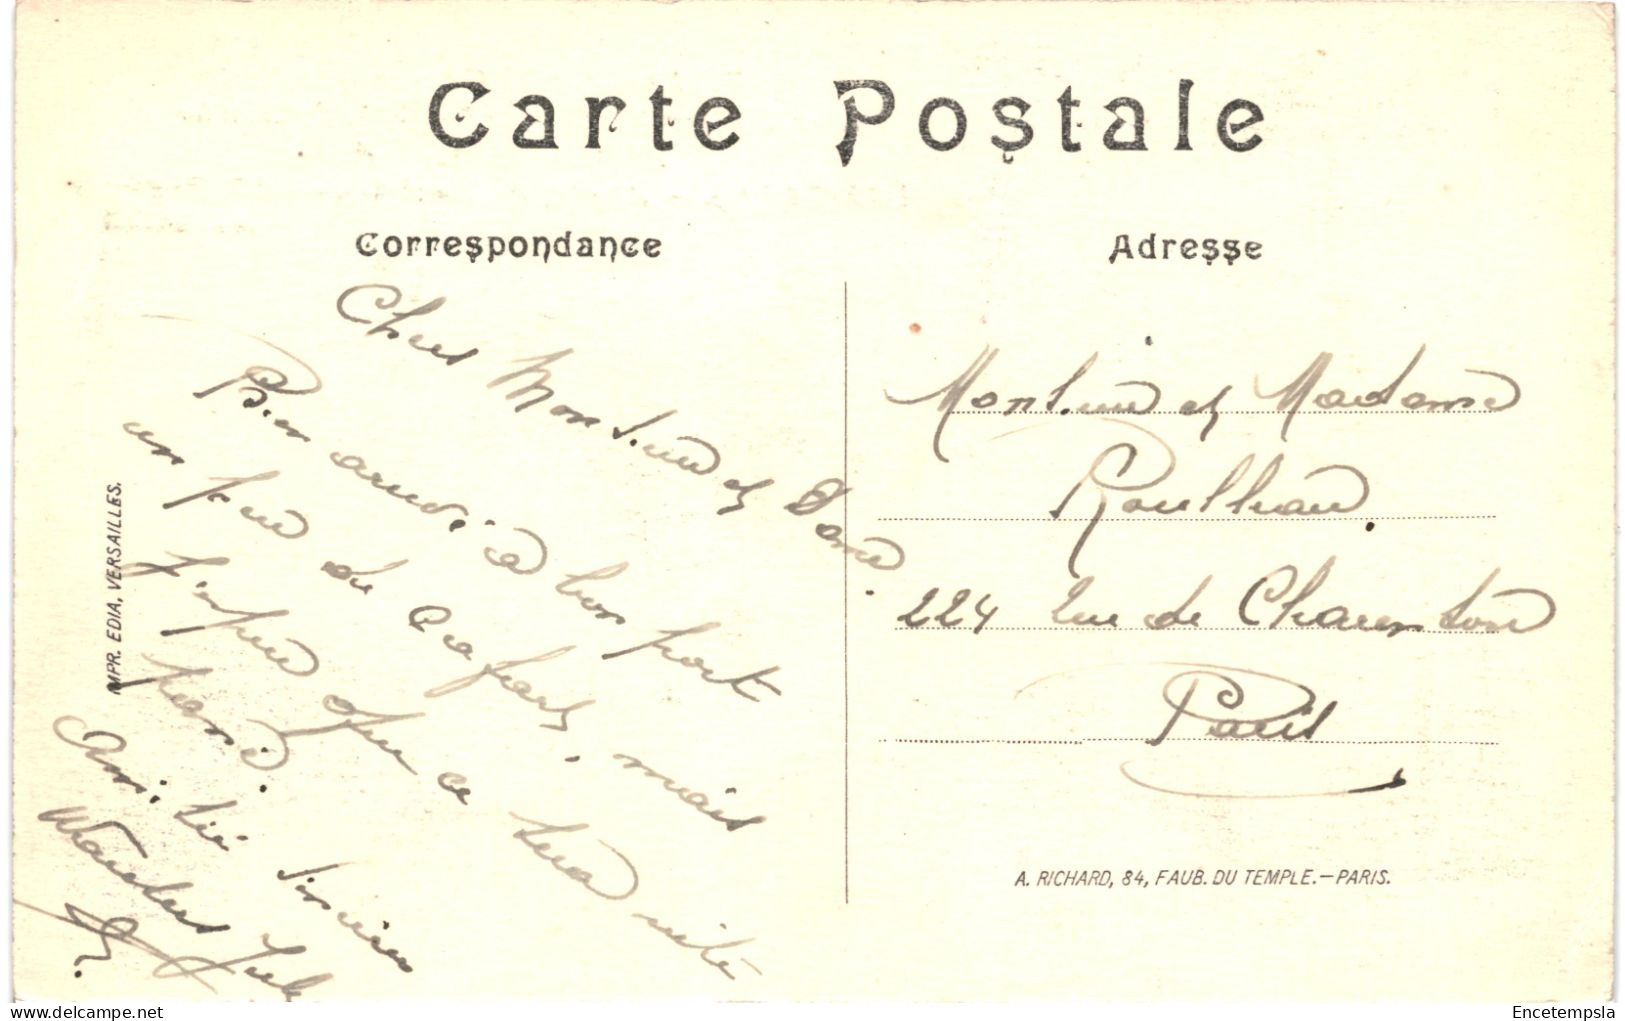 Carte Postale
Correspondance
Adresse
Chers Monsieur et Dame.
Bien arrivé à bon port
un peu de cafard, mais
j'espère que ce sera vite
passé.
Amitié sincère
Jules
Monsieur et Madame
Roulleau.
224 rue de Charenton
Paris
IMPR. EDIA, VERSAILLES.
A. RICHARD, 84, FAUB. DU TEMPLE.—PARIS.
Encetempsla